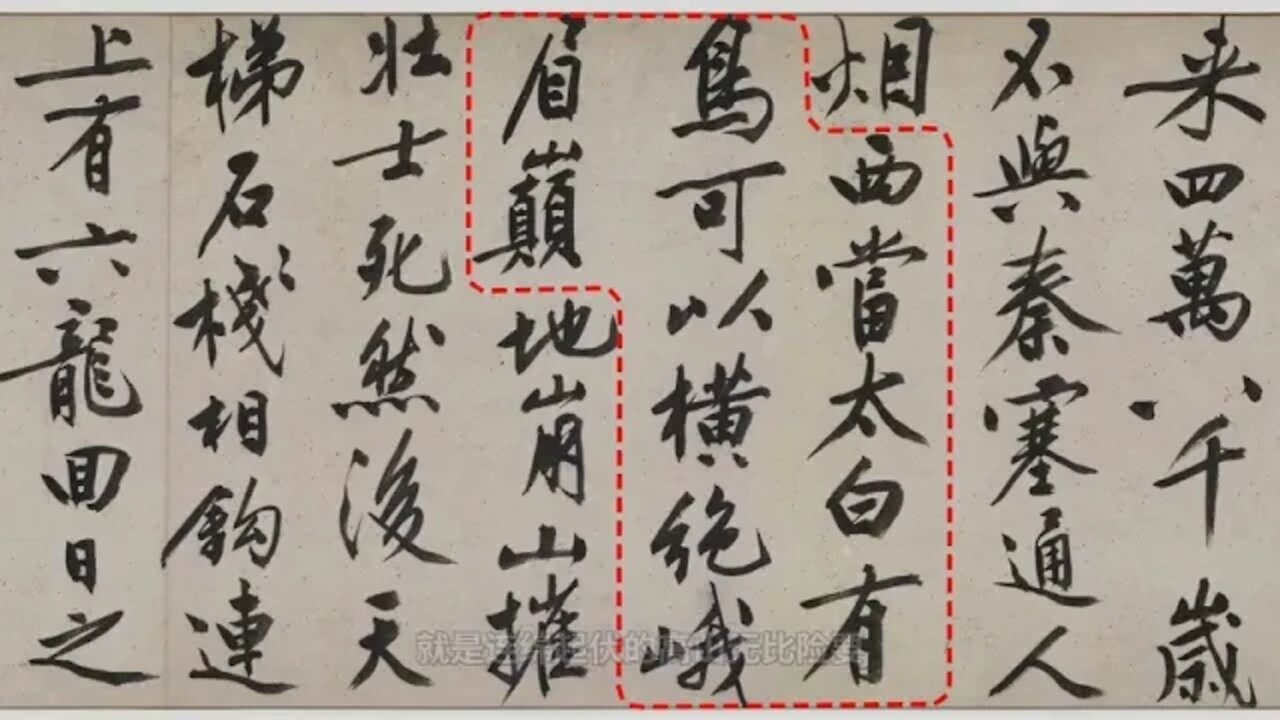 来四萬八千歲
不與秦塞通人
烟西當太白有
鳥可以橫絕峨
眉巔地崩山摧
壯士死然後天
梯石棧相鈎連
上有六龍囬日之
就是连绵起伏的 无比险